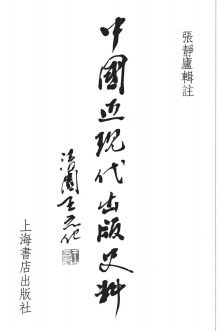 張靜廬輯註
中國近現代出版史料
王元化
上海書店出版社